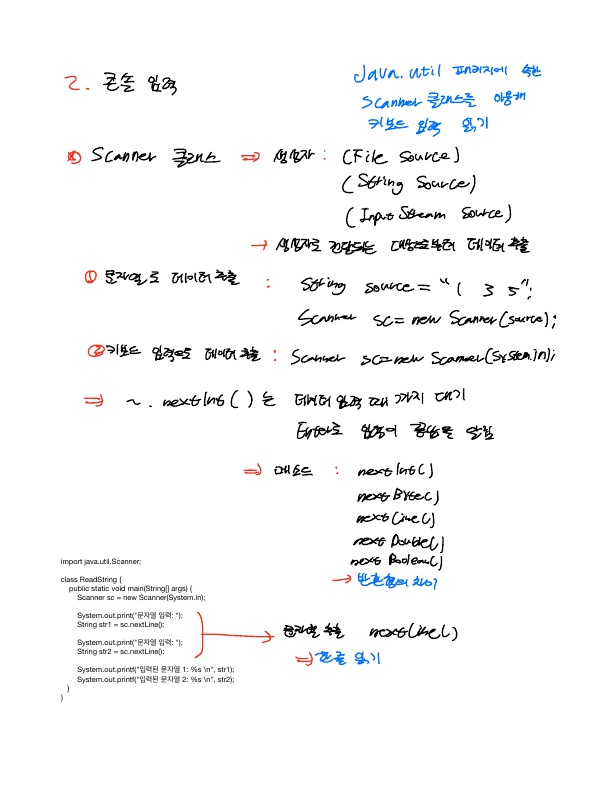 2. 콘솔 입력
Java.util 패키지에 속한
Scanner 클래스를 이용해
키보드 입력 읽기
※ Scanner 클래스 ⇒ 생성자 : (File source)
(String source)
(InputStream source)
→ 생성자로 전달되는 대상으로부터 데이터 추출
① 문자열로 데이터 추출 : String source = "1 3 5";
Scanner sc = new Scanner(source);
② 키보드 입력으로 데이터 추출 : Scanner sc = new Scanner(System.in);
⇒ ~.nextInt()는 데이터 입력 때까지 대기
Enter로 입력이 끝났음을 알림
⇒ 메소드 : nextInt()
nextByte()
nextLine()
nextDouble()
nextBoolean()
→ 반환형의 차이
import java.util.Scanner;
class ReadString {
public static void main(String[] args) {
Scanner sc = new Scanner(System.in);
System.out.print("문자열 입력: ");
String str1 = sc.nextLine();
System.out.print("문자열 입력: ");
String str2 = sc.nextLine();
System.out.printf("입력된 문자열 1: %s \n", str1);
System.out.printf("입력된 문자열 2: %s \n", str2);
}
}
→ 문자열 추출 nextLine()
⇒ 한줄 읽기